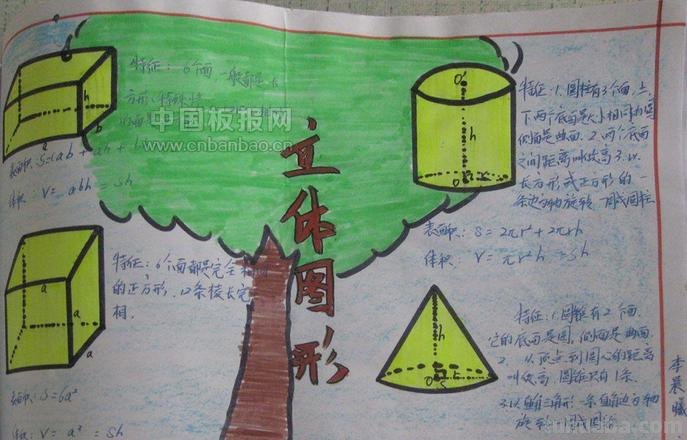 特征：6个面一般都是长
方形，特殊情
中国板报网
www.cnbanbao.cn
表面积：S=(ab+ah+
体积：V=abh=sh
a
b
h
特征：6个面都是完全相同
的正方形，12条棱长完
相．
a
a
a
S=6a²
V=a³=sh
立体图形
O
h
O
r
特征：1.圆柱有3个面，上
下两个底面是大小相同的圆
侧面是曲面．2.两个底面
之间距离叫做高3.以
长方形或正方形的
一条边为轴旋转
表面积：S=2πr²+2πrh
体积：V=πr²h=sh
h
O
r
特征：1.圆锥有2个面
它的底面是圆，侧面是曲面
2．从顶点到圆心的距离
叫做高，圆锥只有1条．
3.以直角三角形一条直角边为轴
旋转
李